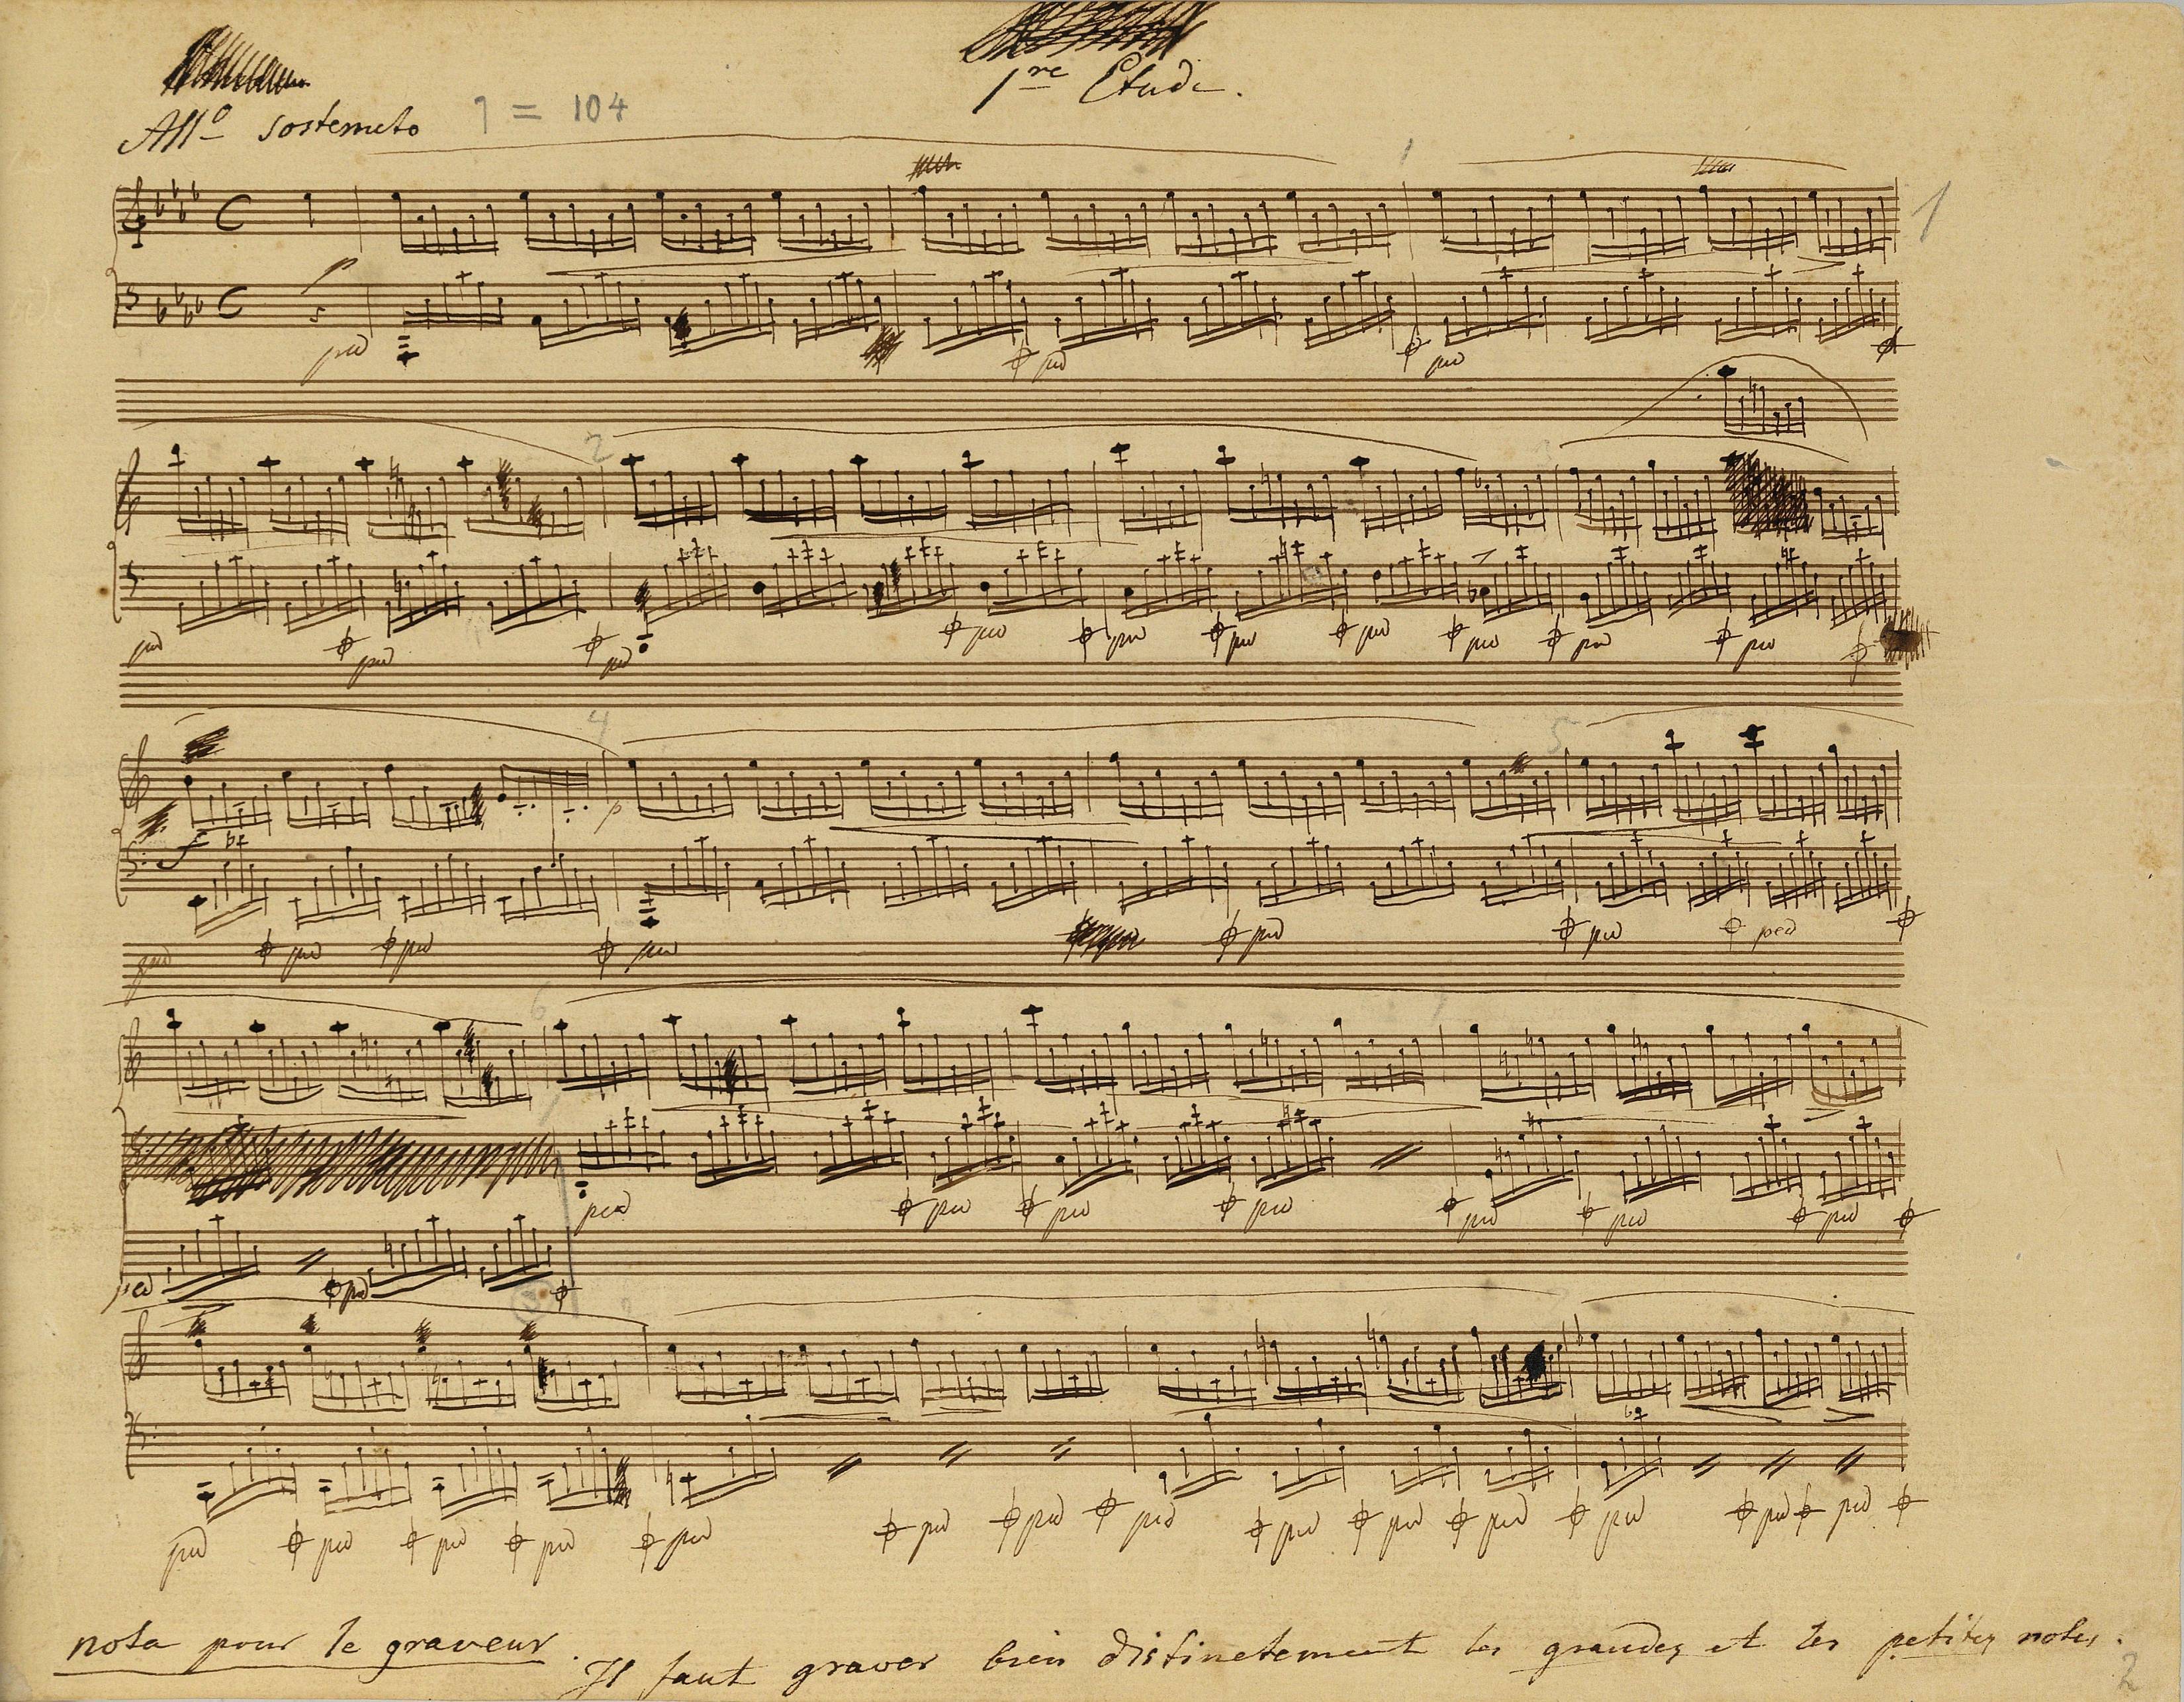 1re Etude.
Allo sostenuto 1 = 104
1
1
p
ped ped ped
2
ped ped ped ped ped ped ped ped ped ped
4 5
p
f
ped ped ped ped ped ped ped
6
ped ped ped ped ped ped ped
ped ped
ped ped ped ped ped ped ped ped ped ped ped ped ped ped
nota pour le graveur. Il faut graver bien distinctement les grandes et les petites notes.
2